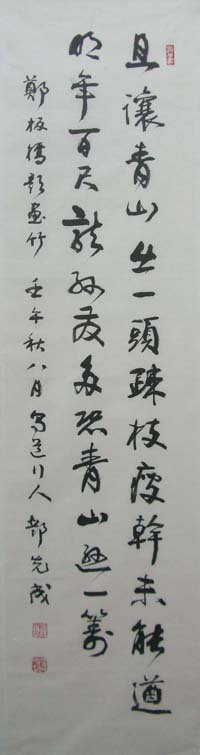 且讓青山出一頭疎枝瘦幹未能遒
明年百尺龍孫發多恐青山遜一籌
鄭板橋題畫竹 壬午秋八月 行人 先成